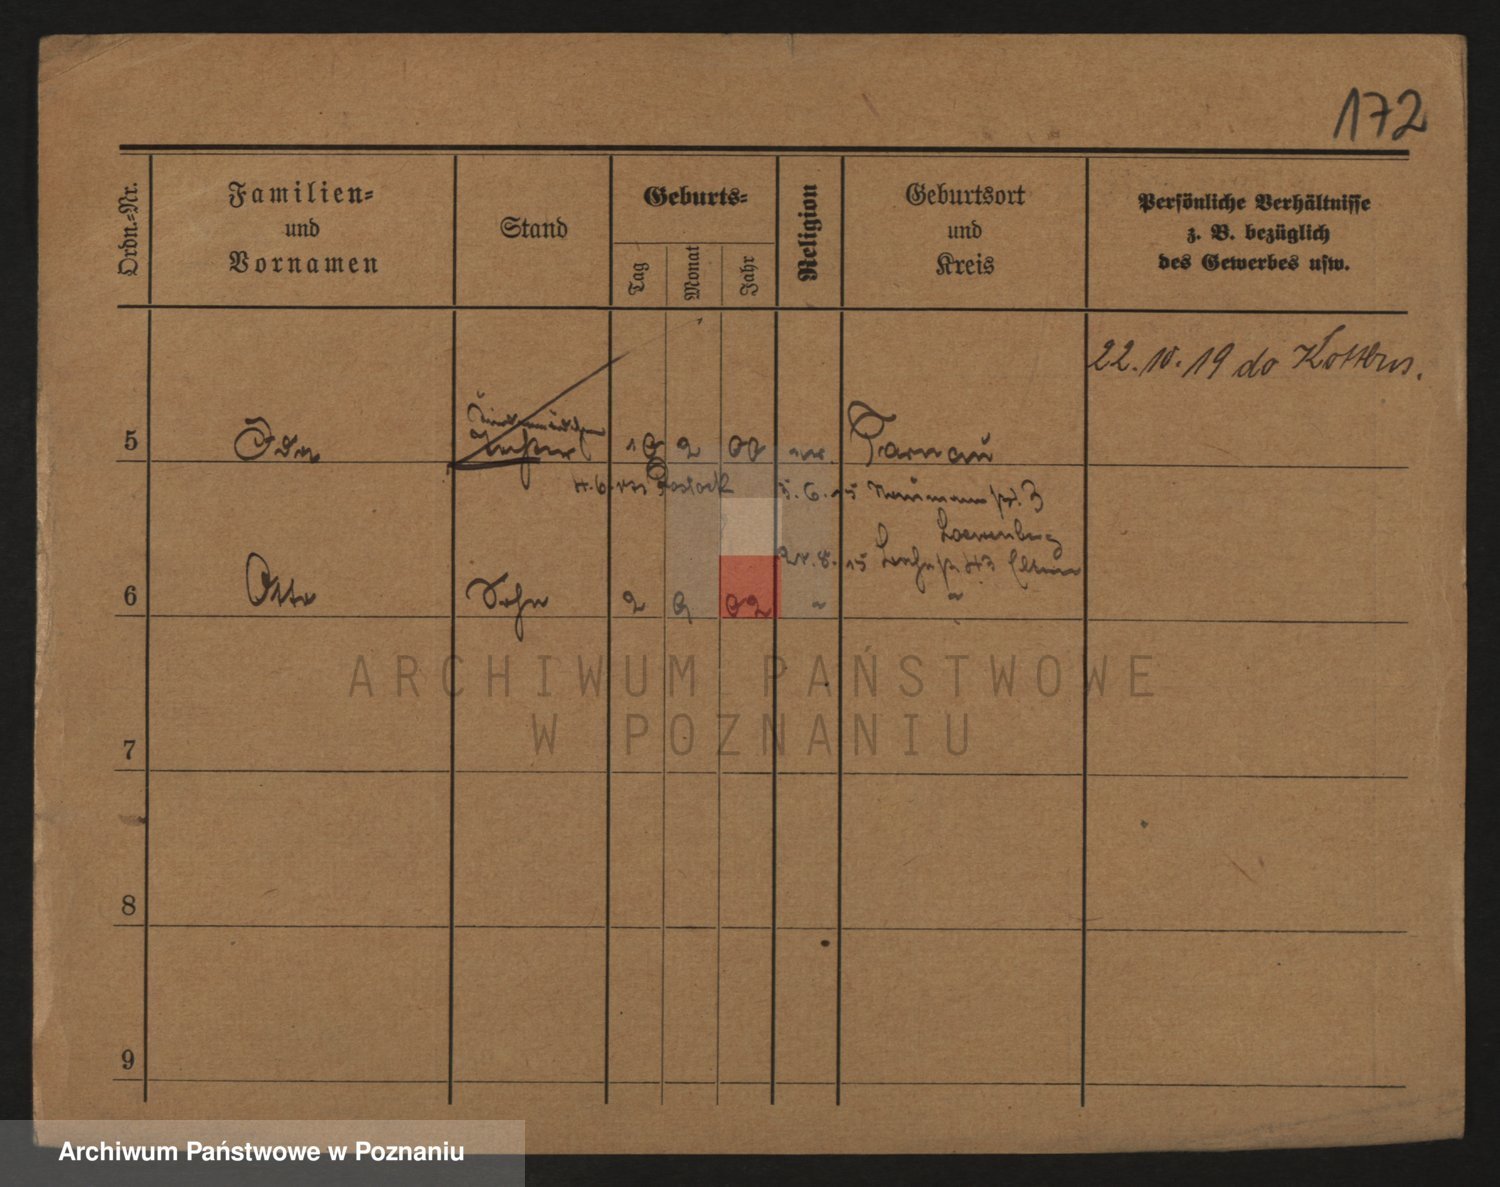 172
Ordn.=Nr.
Familien=
und
Vornamen
Stand
Geburts=
Tag
Monat
Jahr
Religion
Geburtsort
und
Kreis
Persönliche Verhältnisse
z. B. bezüglich
des Gewerbes usw.
22. 10. 19 do Kottbus.
5
Ida
2 00
Tarnau
Rostock
5. 6. 15
6 Otto Sohn 2 9 02 " "
8. 15
ARCHIWUM PAŃSTWOWE
W POZNANIU
7
8
9
Archiwum Państwowe w Poznaniu